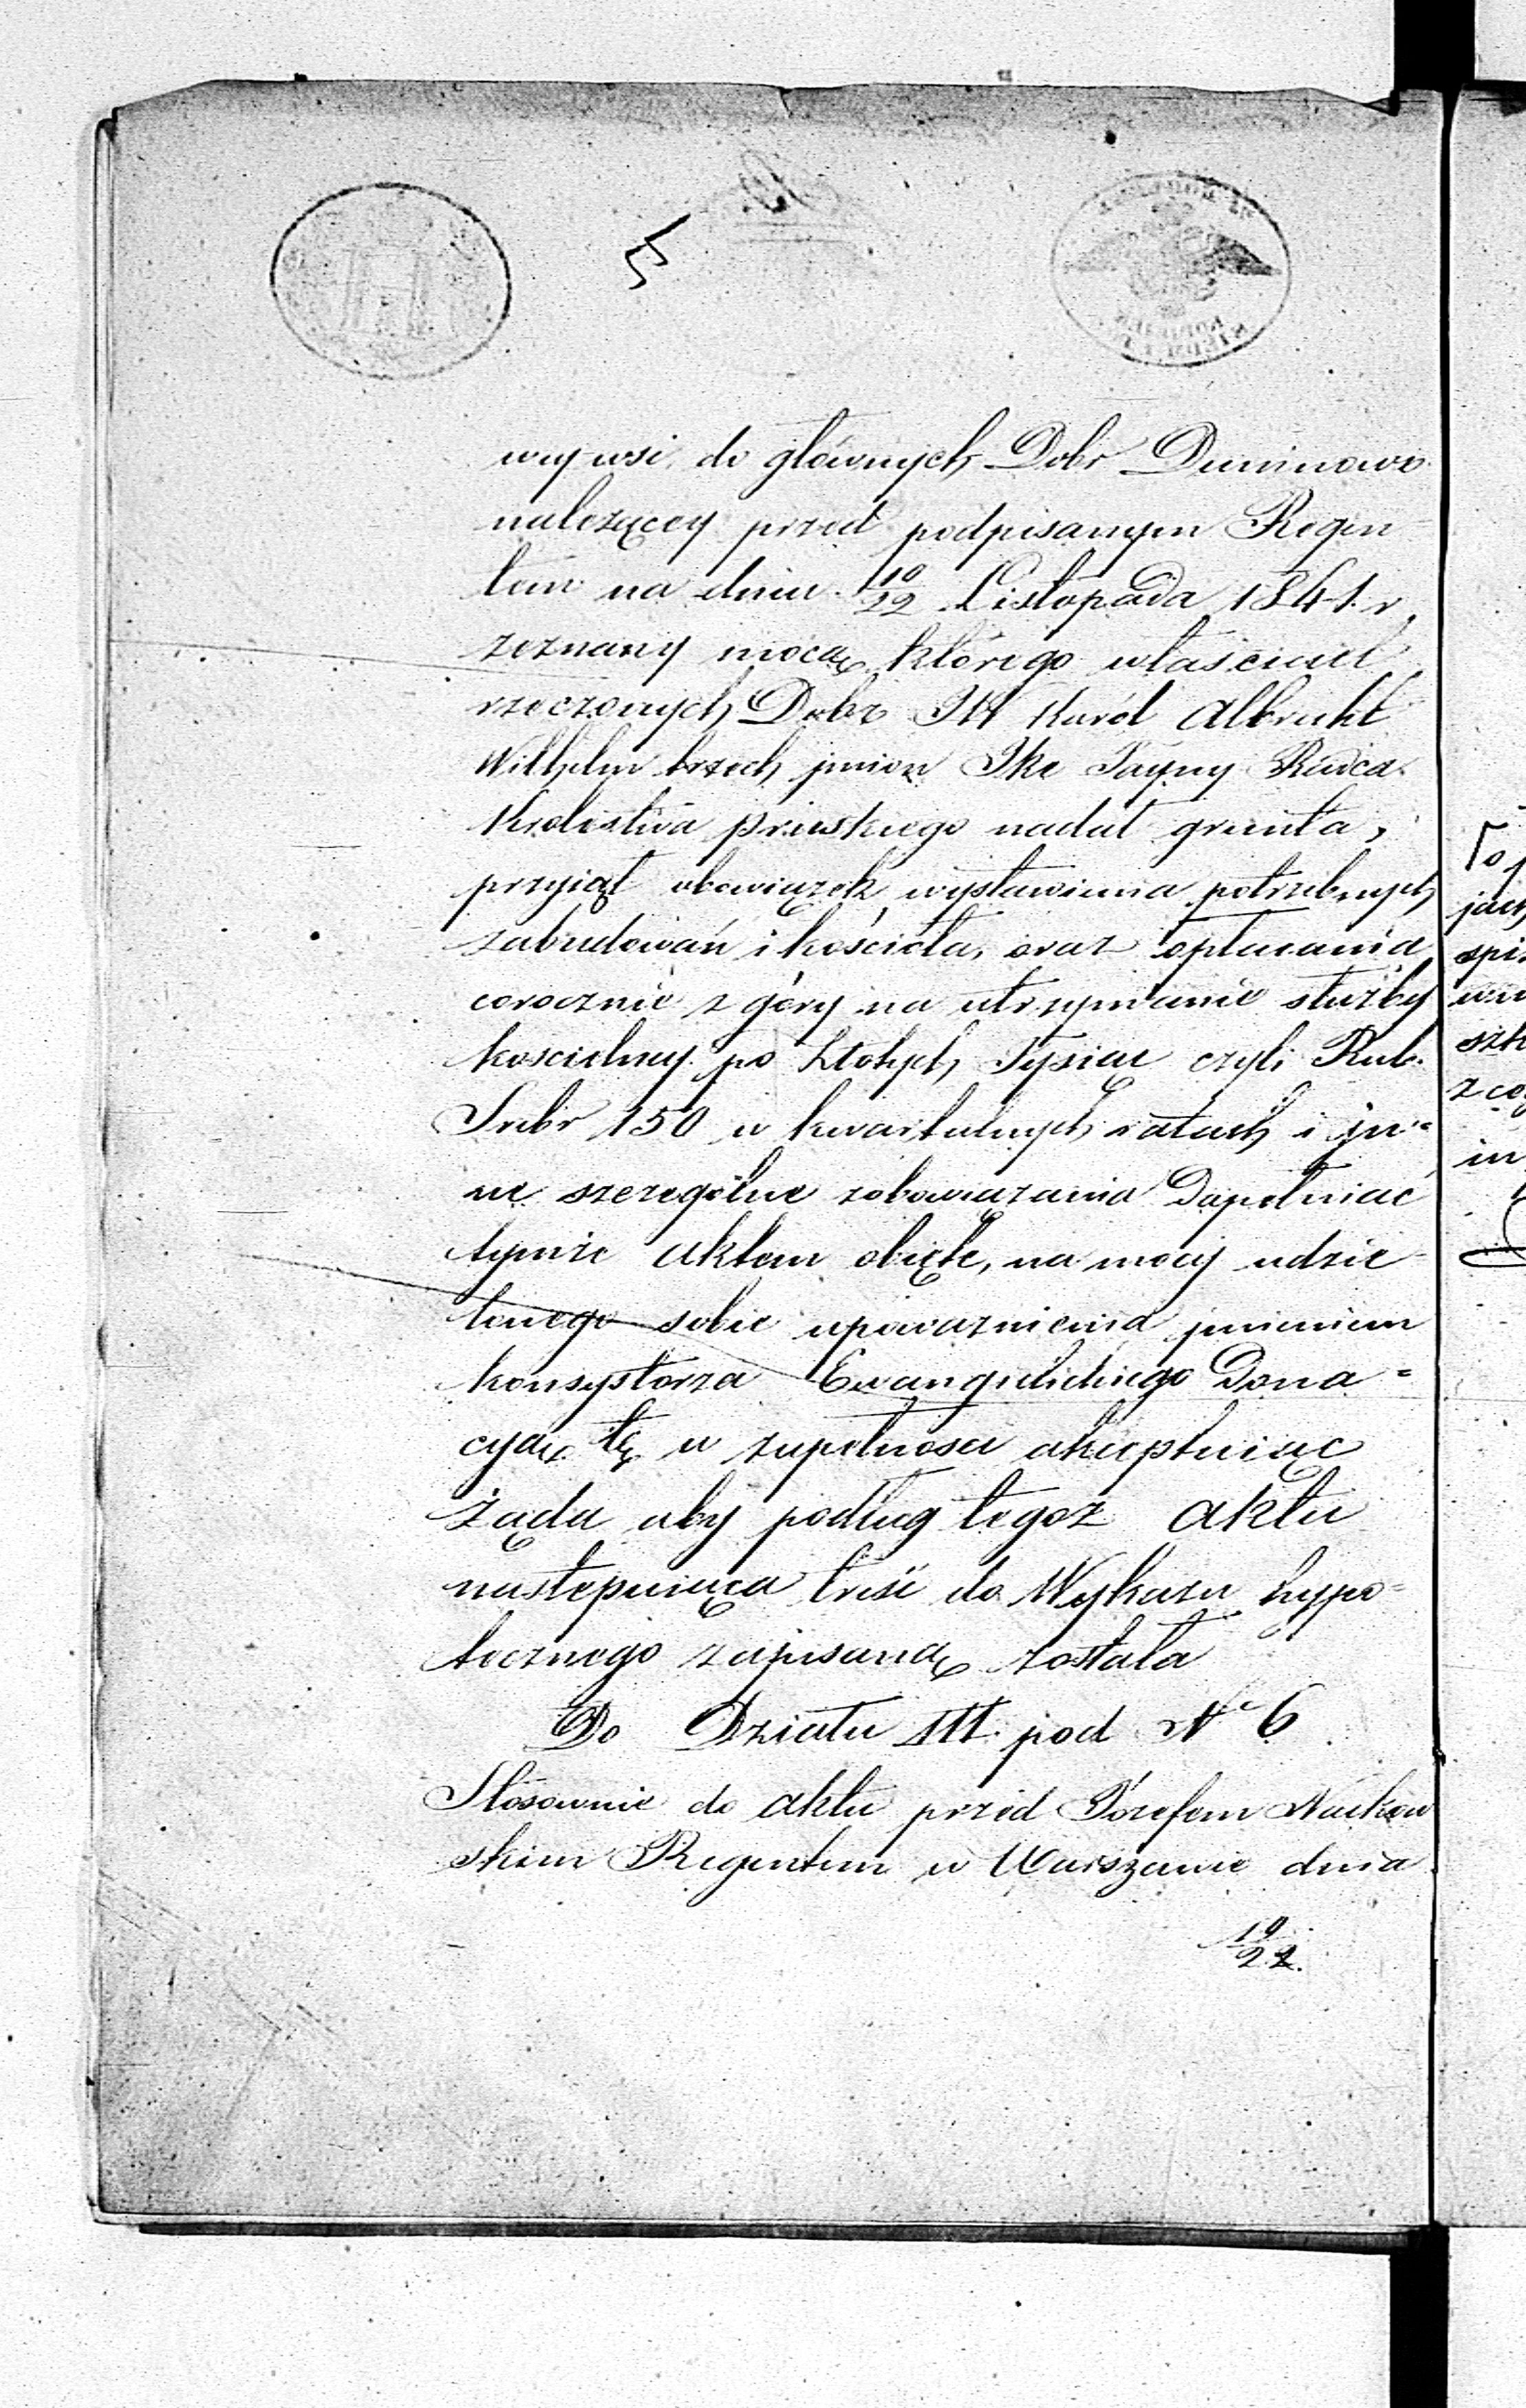 wey wsi, do głównych Dobr Duninowo
należącey przed podpisanym Regen-
tem na dniu 10/22 Listopada 1841. r.
zeznany mocą którego właściciel
rzeczonych Dobr JW Karól Albrecht
Wilhelm trzech imion Ike Tayny Radca
Królestwa pruskiego nadał grunta,
przyiął obowiązek wystawienia potrzebnych
zabudowań i kościoła, oraz opłacania
corocznie z góry na utrzymanie służby
kościelney po Złotych Tysiąc czyli Rub.
Srebr 150 w kwartalnych ratach i in=
ne szczególne zobowiązania Dopełniać
tymże aktem obięte, na mocy udzie-
lonego sobie upoważnienia imieniem
konsystorza Ewangielickiego Dona=
cyą tę w zupełności akceptuiąc
żąda aby podług tegoż aktu
następuiąca treść do Wykazu hypo=
tecznego zapisaną została
Do Działu III. pod No 6
Stosownie do aktu przed Józefem Naikow
skim Regentem w Warszawie dnia
10/22.